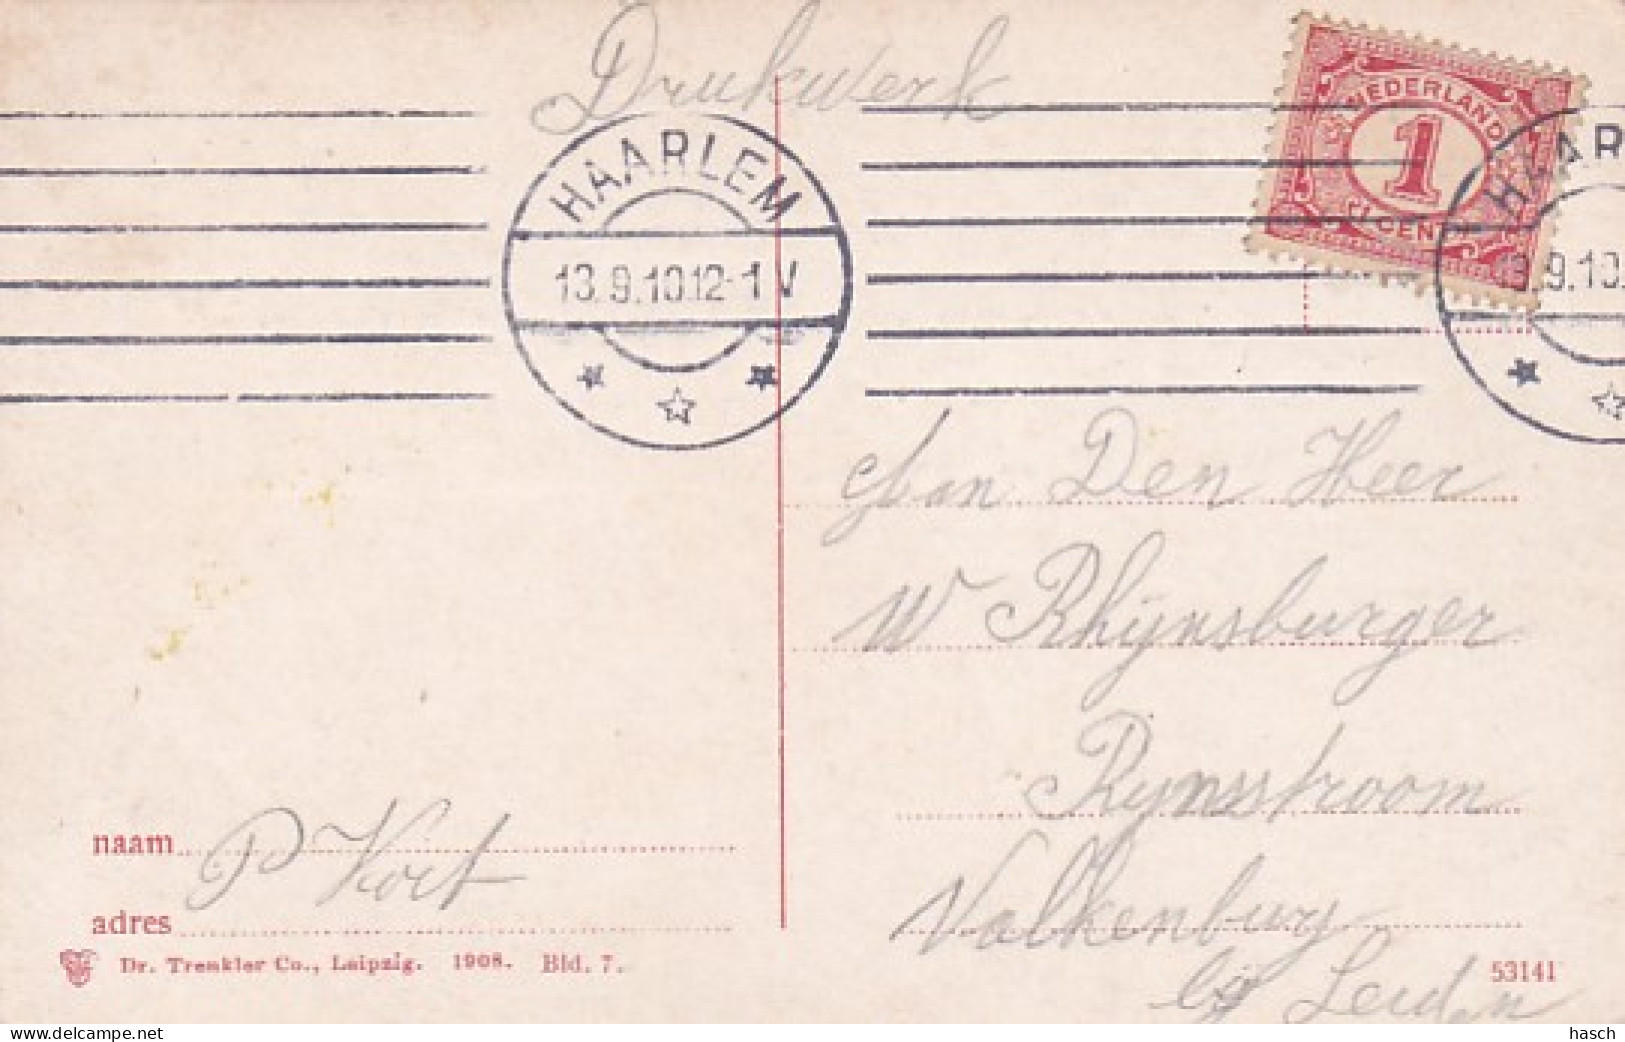 Drukwerk
HAARLEM
13.9.10.12-1 V
NEDERLAND
1
CENT
HAAR
13.9.10.
Aan Den Heer
W Rhijnsburger
Rynsstroom
Valkenburg
bij Leiden
naam P Kort
adres
Dr. Trenkler Co., Leipzig. 1908. Bld. 7.
53141
www.delcampe.net
hasch